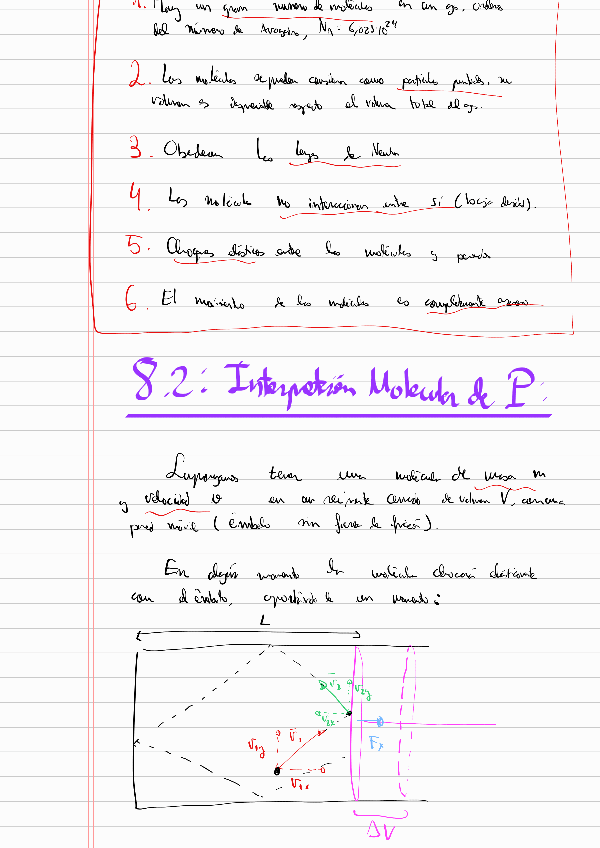 1. Hay un gran número de moléculas en un gas, órdenes
del número de Avogadro, NA = 6,023·10^24
2. Las moléculas se pueden considerar como partículas puntuales, su
volumen es despreciable respecto al volumen total del gas.
3. Obedecen las leyes de Newton
4. Las moléculas no interaccionan entre sí (baja densidad).
5. Choques elásticos entre las moléculas y paredes
6. El movimiento de las moléculas es completamente azaroso.
8.2: Interpretación Molecular de P:
Supongamos tener una molécula de masa m
y velocidad v en un recipiente cerrado de volumen V, con una
pared móvil (émbolo sin fuerza de fricción).
En algún momento la molécula chocará elásticamente
con el émbolo, aportándole un momento:
L
V2 V2y
V2x
V1y V1 Fx
V1x
ΔV